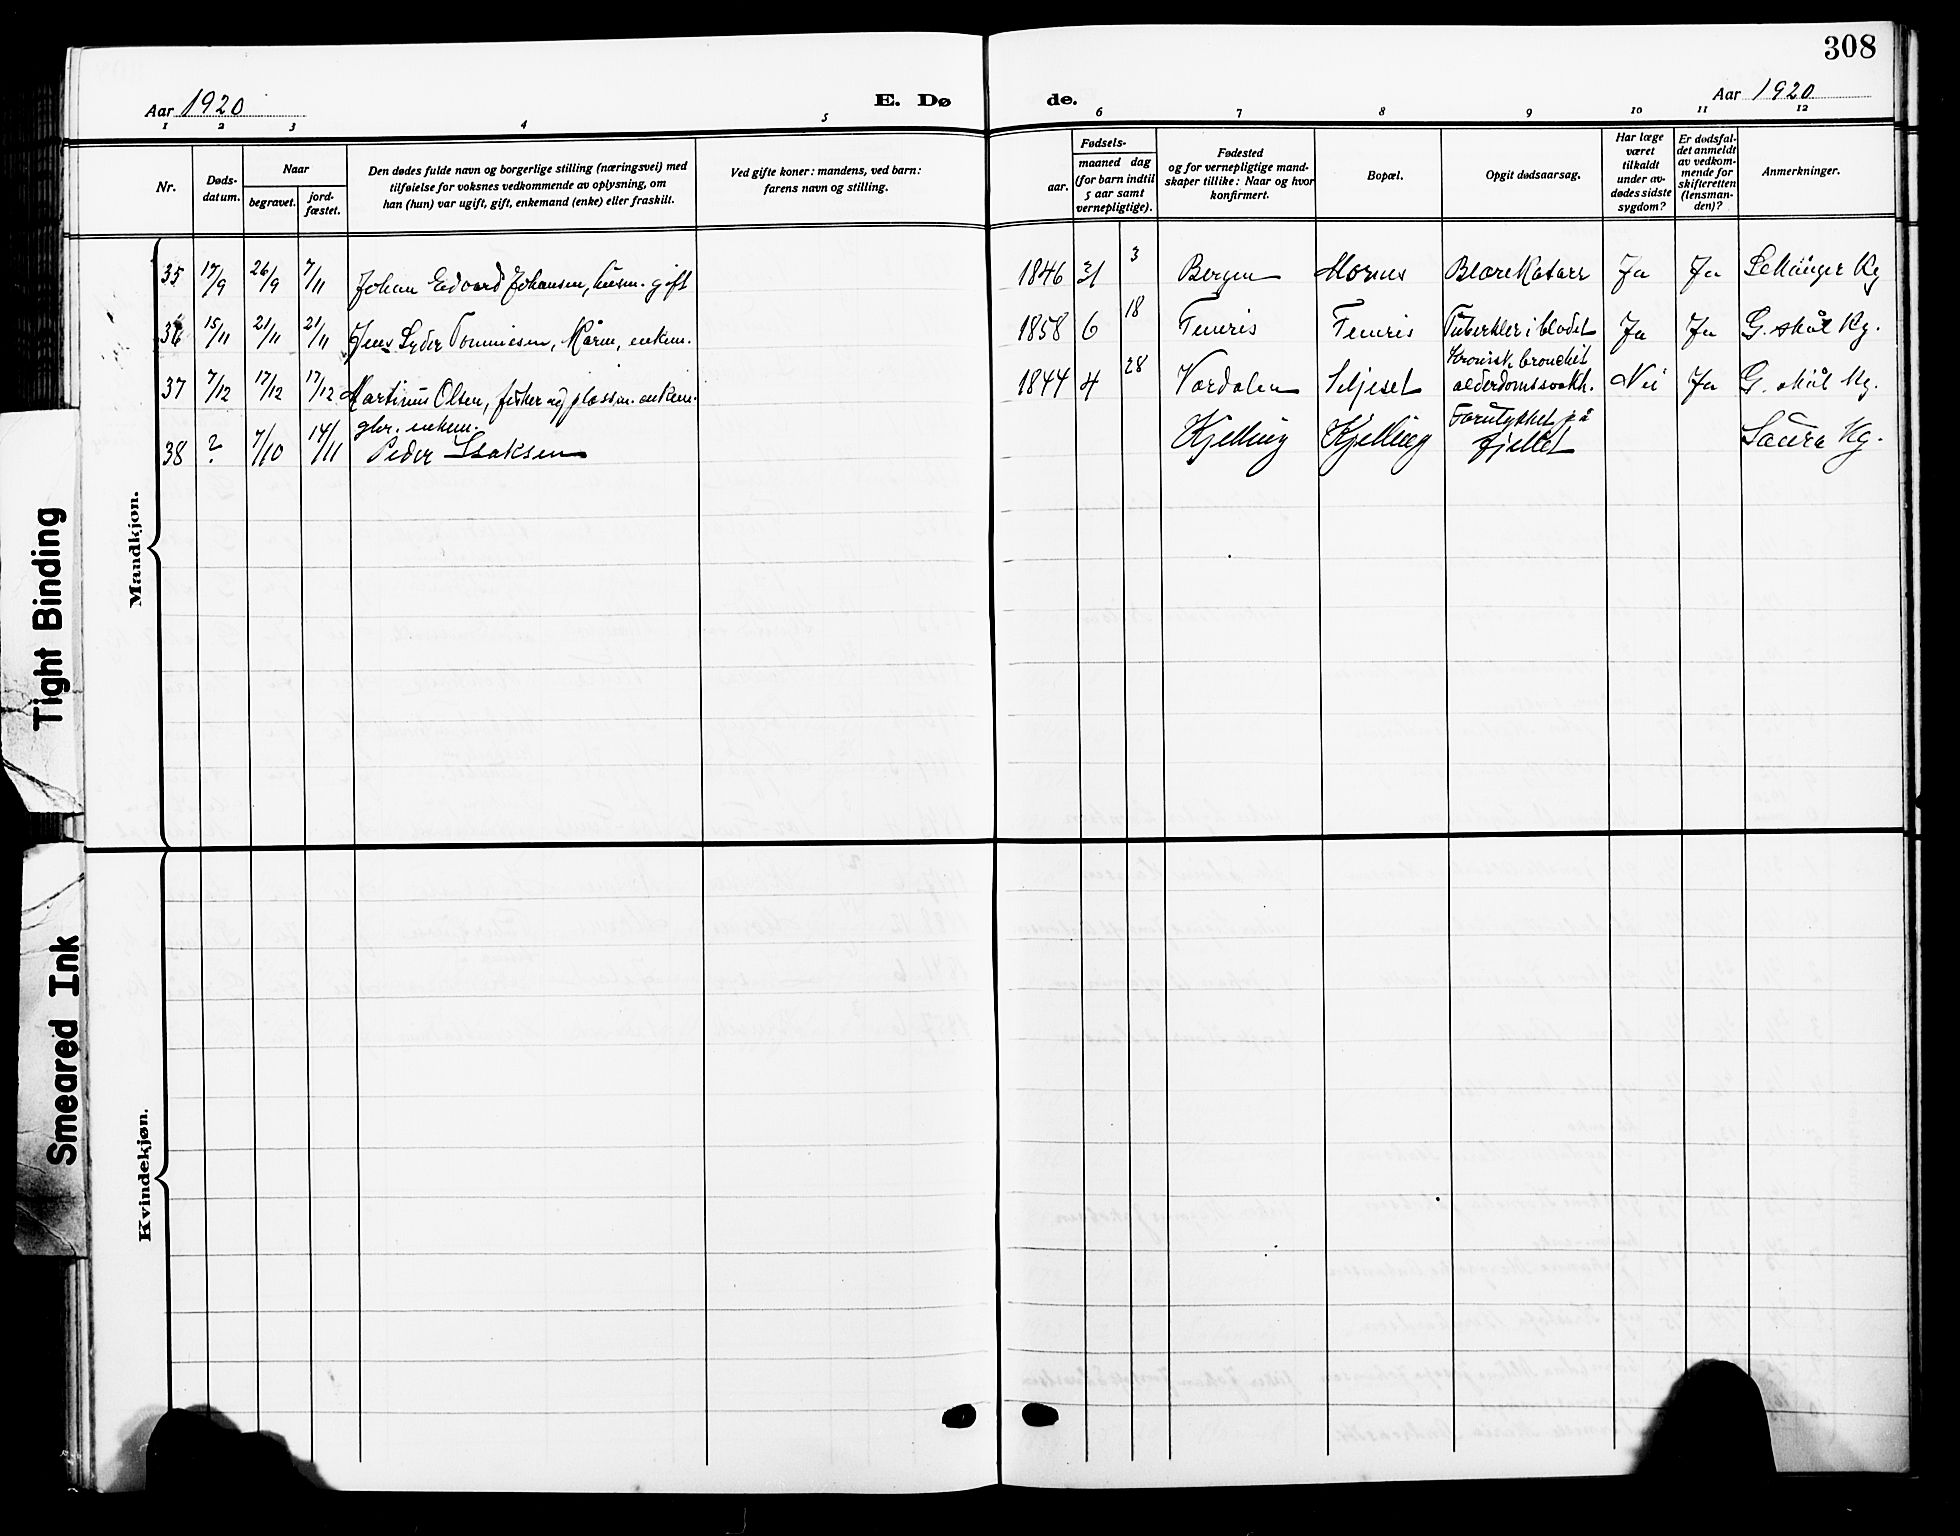 308
Aar 1920
E. Dø
de.
Aar 1920
1 2 3 4 5 6 7 8 9 10 11 12
Nr.
Døds-
datum.
Naar
begravet.
jord-
fæstet.
Den dødes fulde navn og borgerlige stilling (næringsvei) med
tilføielse for voksnes vedkommende av oplysning, om
han (hun) var ugift, gift, enkemand (enke) eller fraskilt.
Ved gifte koner: mandens, ved barn:
farens navn og stilling.
Fødsels-
aar.
maaned dag
(for barn indtil
5 aar samt
vernepligtige).
Fødested
og for vernepligtige mand-
skaper tillike: Naar og hvor
konfirmert.
Bopæl.
Opgit dødsaarsag.
Har læge
været
tilkaldt
under av-
dødes sidste
sygdom?
Er dødsfal-
det anmeldt
av vedkom-
mende for
skifteretten
(lensman-
den)?
Anmerkninger.
Mandkjøn.
35 17/9 26/9 7/11 Johan Edvard Johansen, husm. gift 1846 3 Bergen Mornes Blærekatarr Ja Ja Kg
36 15/11 21/11 21/11 Jens Lyder Tommesen, enkem. 1858 6 18 Femris Femris Tuberkler i blodet Ja Ja G. skål Kg.
37 7/12 17/12 17/12 Martinus Olsen, fisker og plassm. enkem. 1844 4 28 Værdalen Seljeset Kronisk bronchit
alderdomssvakh. Nei Ja G. skål Kg.
38 ? 7/10 14/11 gbr. enkem.
Peder Isaksen Kjelling Kjelling Forulykket på
fjellet Saura Kg.
Kvindekjøn.
Tight Binding
Smeared Ink